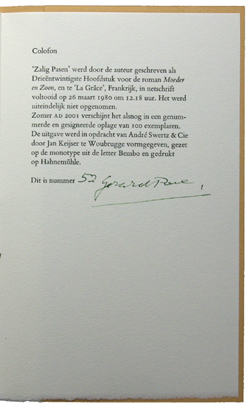 Colofon
'Zalig Pasen' werd door de auteur geschreven als
Drieëntwintigste Hoofdstuk voor de roman Moeder
en Zoon, en te 'La Grâce', Frankrijk, in netschrift
voltooid op 26 maart 1980 om 12.18 uur. Het werd
uiteindelijk niet opgenomen.
Zomer AD 2001 verschijnt het alsnog in een genum-
merde en gesigneerde oplage van 100 exemplaren.
De uitgave werd in opdracht van André Swertz & Cie
door Jan Keijser te Woubrugge vormgegeven, gezet
op de monotype uit de letter Bembo en gedrukt
op Hahnemühle.
Dit is nummer 52 Gerard Reve,